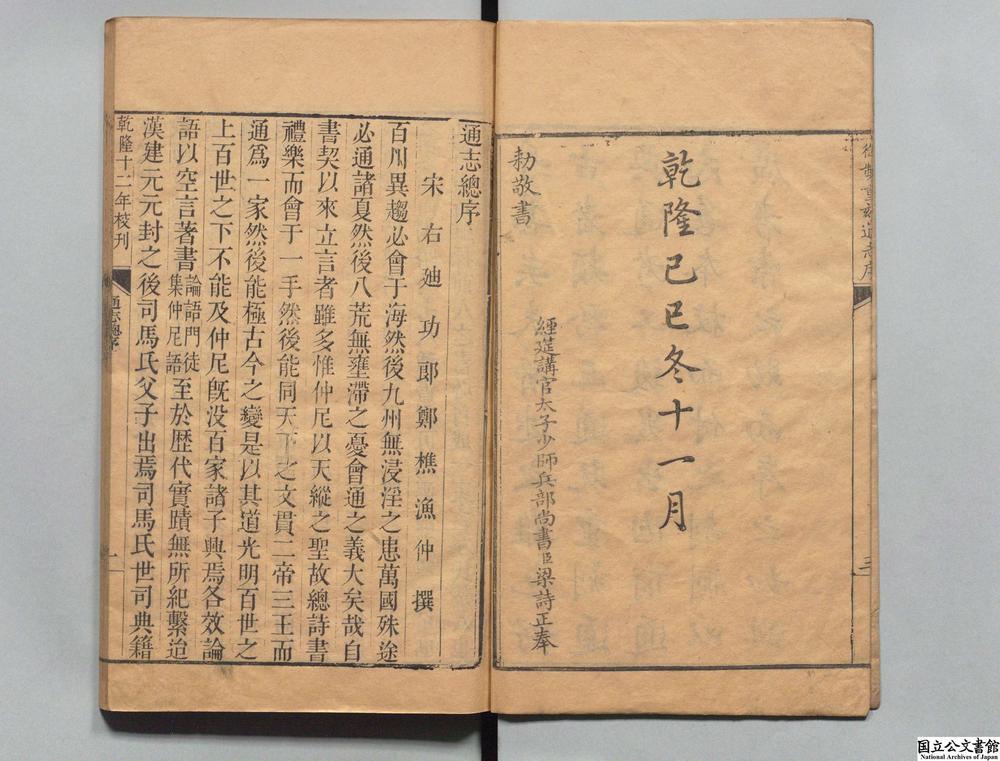 御製重刻通志序
三
乾隆己巳冬十一月
經筵講官太子少師兵部尚書臣梁詩正奉
勅敬書
通志總序
宋右廸功郎鄭樵漁仲撰
百川異趨必會于海然後九州無浸淫之患萬國殊途
必通諸夏然後八荒無壅滯之憂會通之義大矣哉自
書契以來立言者雖多惟仲尼以天縱之聖故總詩書
禮樂而會于一手然後能同天下之文貫二帝三王而
通爲一家然後能極古今之變是以其道光明百世之
上百世之下不能及仲尼旣没百家諸子興焉各效論
語以空言著書論語門徒集仲尼語至於歴代實蹟無所紀繫迨
漢建元元封之後司馬氏父子出焉司馬氏世司典籍
乾隆十二年校刊
通志總序
一
国立公文書館
National Archives of Japan